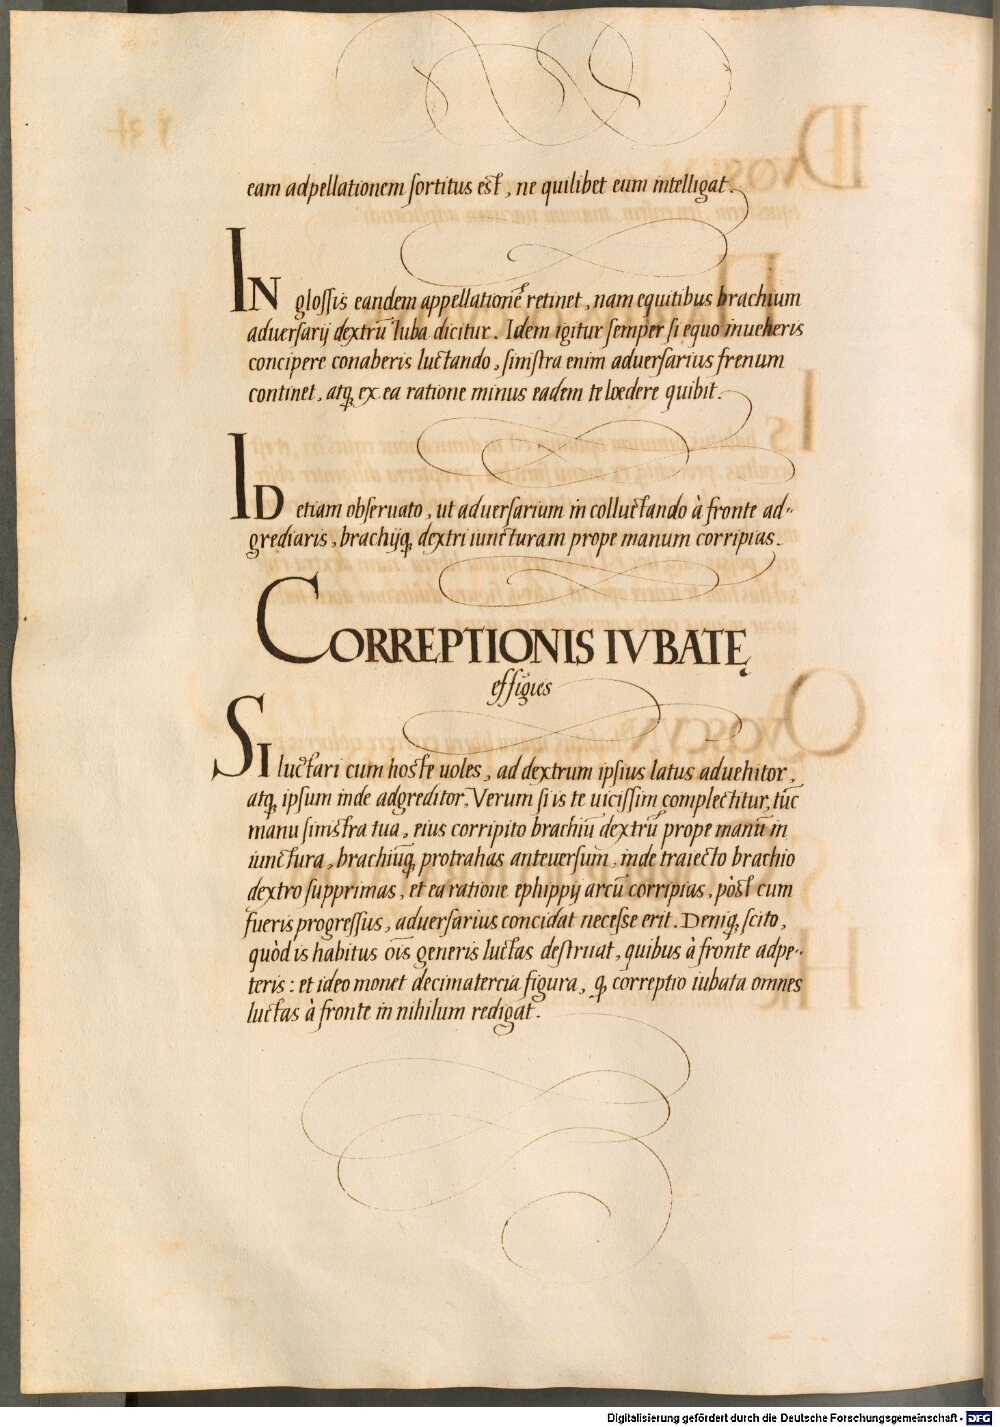 eam adpellationem sortitus est, ne quilibet eum intelligat.
IN glossis eandem appellationē retinet, nam equitibus brachium
aduersarij dextrū Iuba dicitur. Idem igitur semper si equo inueheris
concipere conaberis luctando, sinistra enim aduersarius frenum
continet, atq; ex ea ratione minus eadem te loedere quibit.
ID etiam obseruato, ut aduersarium in colluctando à fronte ad-
grediaris, brachijq; dextri iuncturam prope manum corripias.
CORREPTIONIS IVBATĘ
effigies
SI luctari cum hoste uoles, ad dextrum ipsius latus aduehitor,
atq; ipsum inde adgreditor, Verum si is te uicissim complectitur, tūc
manu sinistra tua, eius corripito brachiū dextrū prope manū in
iunctura, brachiūq; protrahas anteuersum, inde traiecto brachio
dextro supprimas, et ea ratione ephippij arcū corripias, pòst cum
fueris progressus, aduersarius concidat necesse erit. Deniq; scito,
quòd is habitus oīs generis luctas destruat, quibus à fronte adpe-
teris: et ideo monet decimatercia figura, q; correptio iubata omnes
luctas à fronte in nihilum redigat.
Digitalisierung gefördert durch die Deutsche Forschungsgemeinschaft - DFG